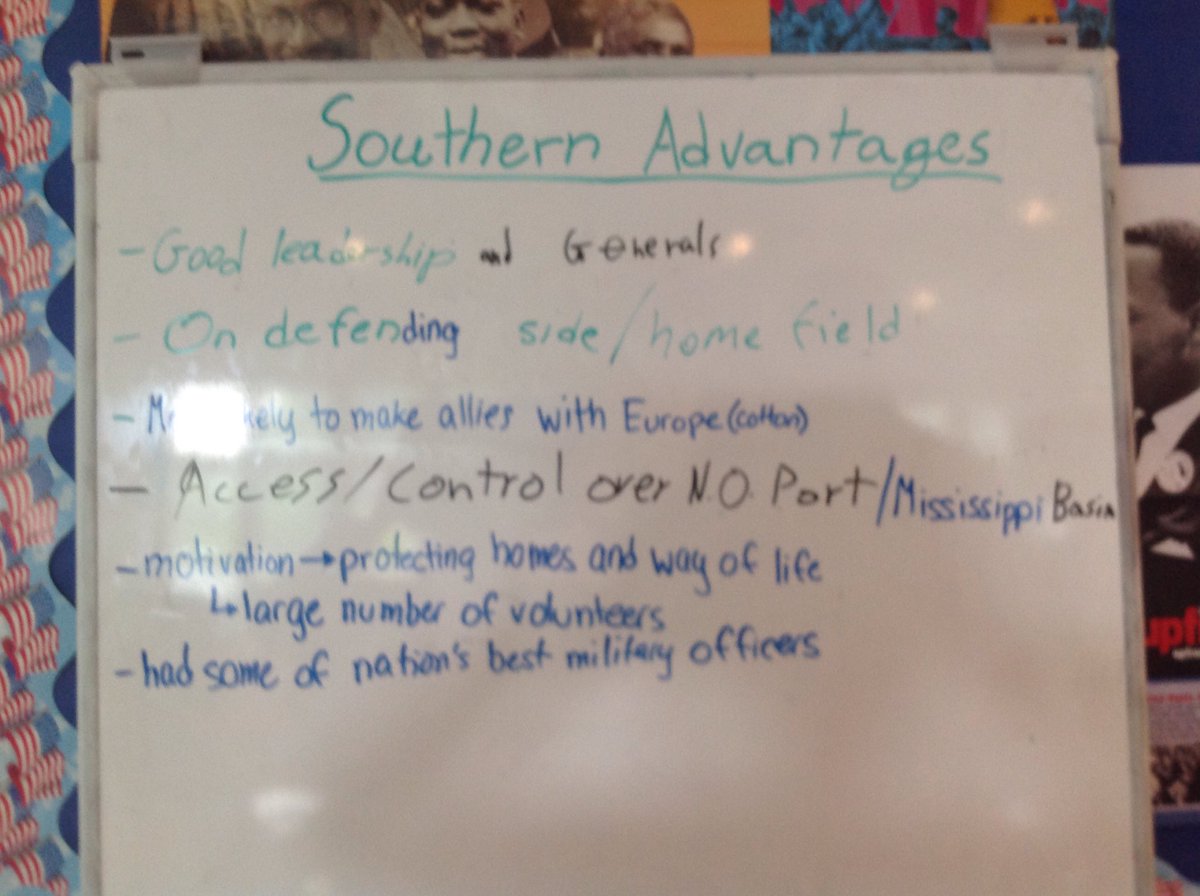 Southern Advantages
- Good leadership and Generals
- On defending side/home field
- to make allies with Europe (cotton)
- Access/Control over N.O. Port/Mississippi Basin
- motivation → protecting homes and way of life
↳ large number of volunteers
- had some of nation's best military officers